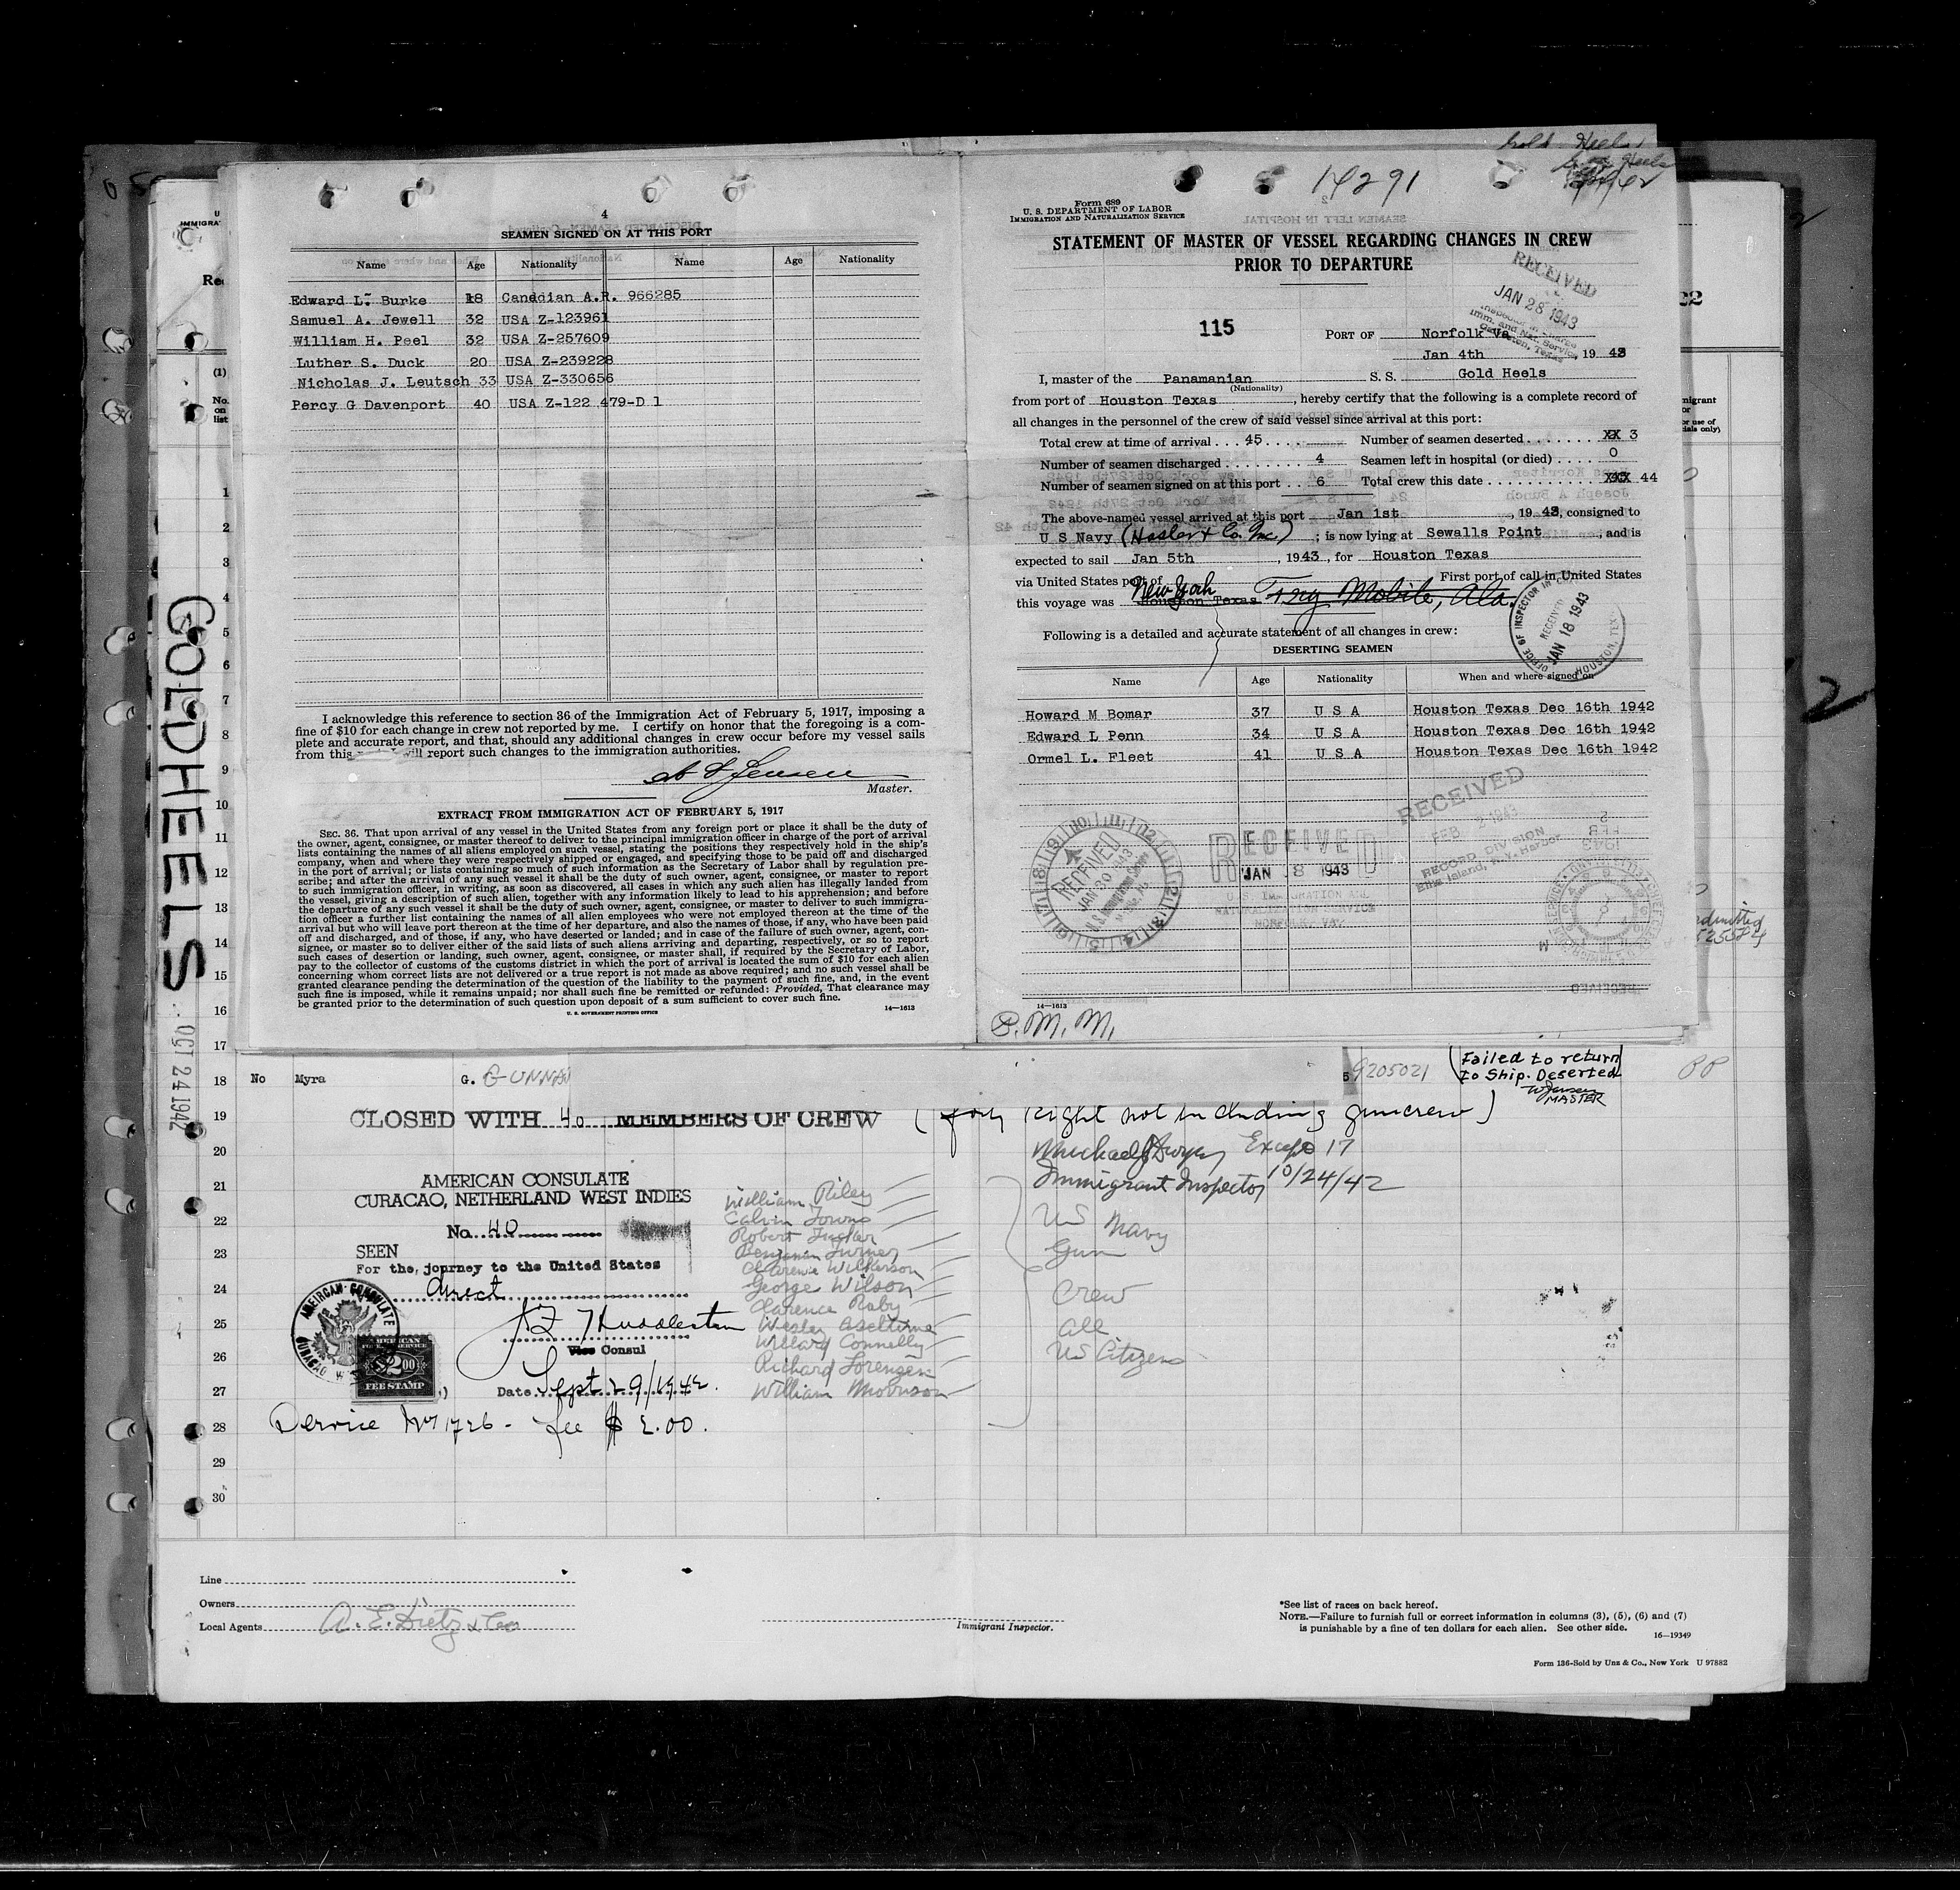 14291
4
SEAMEN SIGNED ON AT THIS PORT
Name Age Nationality Name Age Nationality
Edward L. Burke 18 Canadian A.R. 966285
Samuel A. Jewell 32 USA Z-123961
William H. Peel 32 USA Z-257609
Luther S. Duck 20 USA Z-239228
Nicholas J. Leutsch 33 USA Z-330656
Percy G Davenport 40 USA Z-122 479-D 1
I acknowledge this reference to section 36 of the Immigration Act of February 5, 1917, imposing a
fine of $10 for each change in crew not reported by me. I certify on honor that the foregoing is a com-
plete and accurate report, and that, should any additional changes in crew occur before my vessel sails
from this will report such changes to the immigration authorities.
Jensen
Master.
EXTRACT FROM IMMIGRATION ACT OF FEBRUARY 5, 1917
SEC. 36. That upon arrival of any vessel in the United States from any foreign port or place it shall be the duty of
the owner, agent, consignee, or master thereof to deliver to the principal immigration officer in charge of the port of arrival
lists containing the names of all aliens employed on such vessel, stating the positions they respectively hold in the ship's
company, when and where they were respectively shipped or engaged, and specifying those to be paid off and discharged
in the port of arrival; or lists containing so much of such information as the Secretary of Labor shall by regulation pre-
scribe; and after the arrival of any such vessel it shall be the duty of such owner, agent, consignee, or master to report
to such immigration officer, in writing, as soon as discovered, all cases in which any such alien has illegally landed from
the vessel, giving a description of such alien, together with any information likely to lead to his apprehension; and before
the departure of any such vessel it shall be the duty of such owner, agent, consignee, or master to deliver to such immigra-
tion officer a further list containing the names of all alien employees who were not employed thereon at the time of the
arrival but who will leave port thereon at the time of her departure, and also the names of those, if any, who have been paid
off and discharged, and of those, if any, who have deserted or landed; and in case of the failure of such owner, agent, con-
signee, or master so to deliver either of the said lists of such aliens arriving and departing, respectively, or so to report
such cases of desertion or landing, such owner, agent, consignee, or master shall, if required by the Secretary of Labor,
pay to the collector of customs of the customs district in which the port of arrival is located the sum of $10 for each alien
concerning whom correct lists are not delivered or a true report is not made as above required; and no such vessel shall be
granted clearance pending the determination of the question of the liability to the payment of such fine, and, in the event
such fine is imposed, while it remains unpaid; nor shall such fine be remitted or refunded: Provided, That clearance may
be granted prior to the determination of such question upon deposit of a sum sufficient to cover such fine.
U. S. GOVERNMENT PRINTING OFFICE 14—1613
Form 689
U. S. DEPARTMENT OF LABOR
IMMIGRATION AND NATURALIZATION SERVICE
STATEMENT OF MASTER OF VESSEL REGARDING CHANGES IN CREW
PRIOR TO DEPARTURE
RECEIVED
JAN 28 1943
115
PORT OF Norfolk Va
Jan 4th, 1943
I, master of the Panamanian S. S. Gold Heels
(Nationality)
from port of Houston Texas, hereby certify that the following is a complete record of
all changes in the personnel of the crew of said vessel since arrival at this port:
Total crew at time of arrival . . . 45 . . . . Number of seamen deserted . . . . . . . XX 3
Number of seamen discharged . . . . . . . . 4 Seamen left in hospital (or died) . . . . 0
Number of seamen signed on at this port . . 6 Total crew this date . . . . . . . . . . . . XXX 44
The above-named vessel arrived at this port Jan 1st, 1943, consigned to
U S Navy (Hasler & Co. Inc.); is now lying at Sewalls Point, and is
expected to sail Jan 5th, 1943, for Houston Texas
via United States port of First port of call in United States
this voyage was Houston Texas New York Mobile, Ala.
Following is a detailed and accurate statement of all changes in crew:
DESERTING SEAMEN
OFFICE OF INSPECTOR IN
RECEIVED
JAN 18 1943
HOUSTON, TEX.
Name Age Nationality When and where signed on
Howard M Bomar 37 U S A Houston Texas Dec 16th 1942
Edward L Penn 34 U S A Houston Texas Dec 16th 1942
Ormel L. Fleet 41 U S A Houston Texas Dec 16th 1942
RECEIVED
FEB 2 1943
RECORD DIVISION
Ellis Island, N.Y. Harbor
RECEIVED
JAN 30 1943
RECEIVED
JAN 8 1943
U.S. IMMIGRATION AND
NATURALIZATION SERVICE
NORFOLK, VA.
14—1613
P. M. M.
GOLDHEELS
OCT 24 1942
(1)
No.
on
list
1
2
3
4
5
6
7
8
9
10
11
12
13
14
15
16
17
18 No Myra G. GUNNAU 9205021 (Failed to return
to Ship. Deserted
MASTER
19
CLOSED WITH 40 MEMBERS OF CREW (forty eight not including guncrew)
20
Immigrant Inspector 10/24/42
21
AMERICAN CONSULATE
CURACAO, NETHERLAND WEST INDIES
22
No. 40
23
SEEN
For the journey to the United States
24
direct
25
Huddleston
Vice Consul
26
27
Date Sept 29/1942.
AMERICAN CONSULATE
CURACAO
$2.00
FEE STAMP
28
Service No 1726 - fee $ 2.00.
29
30
William Riley
Calvin Towns
Robert Tucker
Benjamin Turner
Clarence Wilkerson
George Wilson
Clarence Raby
Wesley Aseltine
Willard Connelly
Richard Lorenzen
William Morrison
US Navy
Gun
Crew
all
US Citizens
Line
Owners
Local Agents A. E. Dietz & Co
Immigrant Inspector.
*See list of races on back hereof.
NOTE.—Failure to furnish full or correct information in columns (3), (5), (6) and (7)
is punishable by a fine of ten dollars for each alien. See other side.
16—19349
Form 136-Sold by Unz & Co., New York U 97882